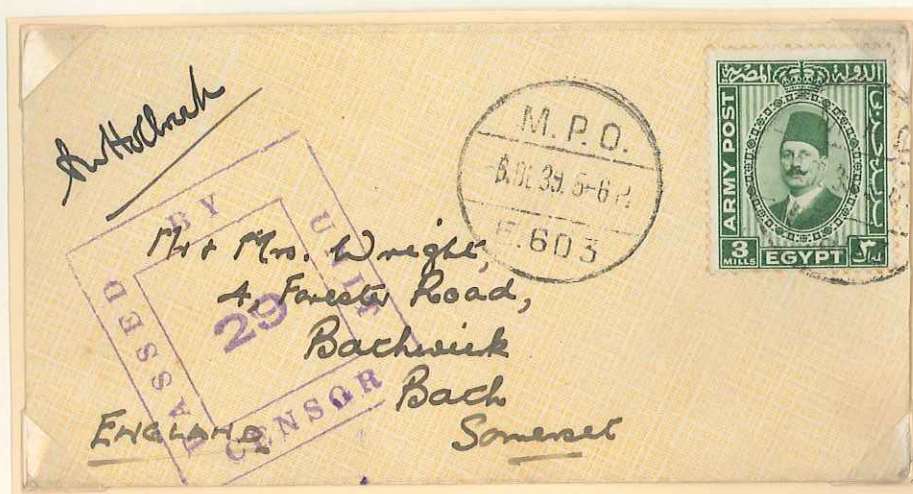 M.P.O.
6.DE.39. 5-6 P.
E.603
الدولة المصرية
ARMY POST
3
MILLS
EGYPT
٣
PASSED BY UNIT CENSOR
29
Mr & Mrs. Wright,
4, Forester Road,
Bathwick
Bath
Somerset
ENGLAND